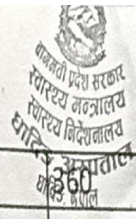 बागमती प्रदेश सरकार
स्वास्थ्य मन्त्रालय
स्वास्थ्य निर्देशनालय
धादिङ अस्पताल
धादिङ, नेपाल
360